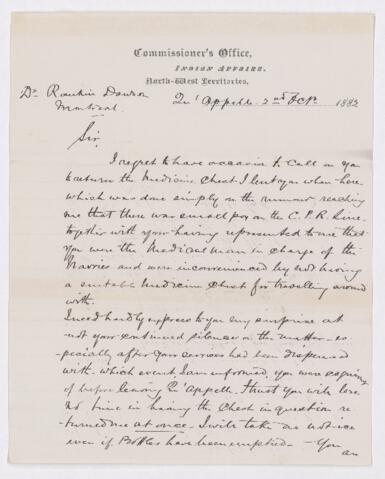 Commissioner's Office,
INDIAN AFFAIRS,
North-West Territories,
Dr Rankin Dawson
Montreal
Qu'Appelle 2nd Oct 1882
Sir,
I regret to have occasion to call on you
to return the Medicine Chest I lent you when here
which was done simply on the rumour reaching
me that there was small pox on the C.P.R. Line
together with your having represented to me that
you were the Medical man in charge of the
Navvies and were inconvenienced by not having
a suitable Medicine Chest for travelling around
with.
I need hardly express to you my surprise at
your continued silence on the matter - es-
pecially after your services had been dispensed
with, which event I am informed, you were
of before leaving Qu'Appelle. I trust you will lose
no time in having the Chest in question re-
turned me at once. I will take no notice
even if Bottles have been emptied - You
an